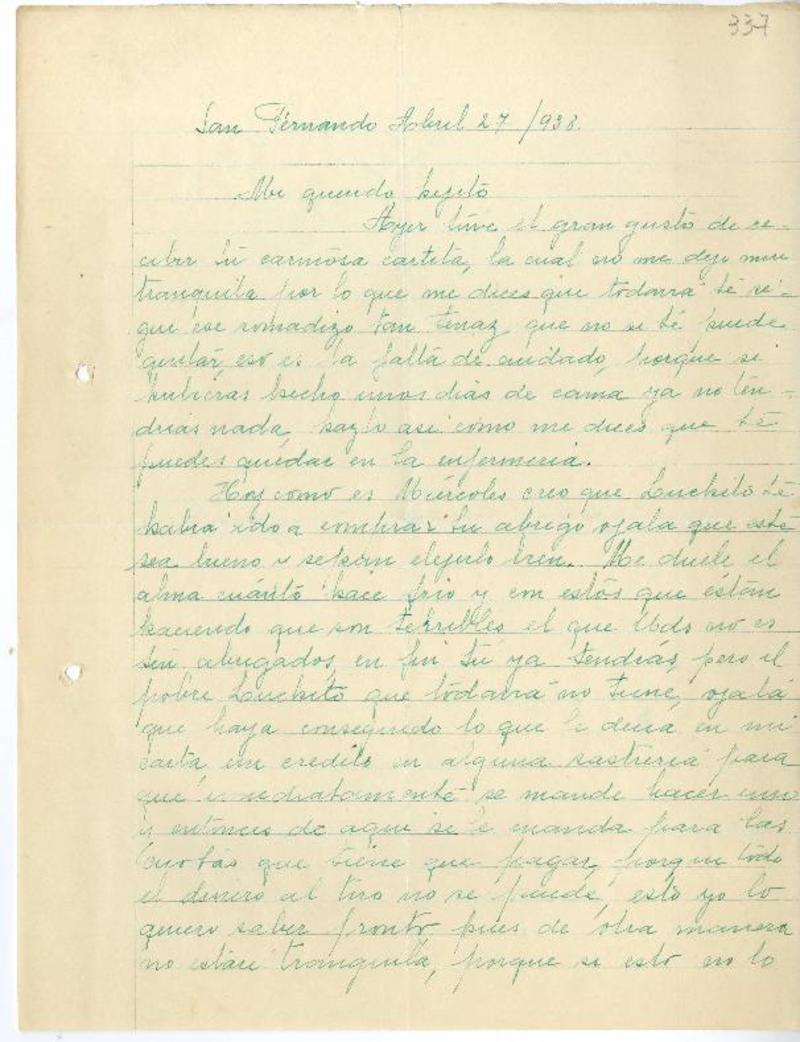 337
San Fernando Abril 27/938.
Mi querido hijito
Ayer tuve el gran gusto de re-
cibir tú cariñosa cartita, la cual no me dejo muy
tranquila por lo que me dices que todavia té si-
gue ése romadizo tan tenaz que no se té puede
quitar, eso es la falta de cuidado, porque si
hubieras hecho unos dias de cama ya no ten-
drias nada, hazlo asi como me dices que té
puedes quedar en la enfermeria.
Hoy como es Miércoles creo que Luchito té
habia ido a comprar tu abrigo ojala que esté
sea bueno y sepan elejirlo bien. Me duele el
alma cuánto hace frio y con estós que éstan
haciendo que son terribles el que Uds no es
tén abrigados, en fin tú ya tendrás, pero el
pobre Luchito que todavia no tiene, ojalá
que haya conseguido lo que le decia en mi
carta, un credito en alguna sastreria para
que inmediatamente se mande hacer uno
y entonces de aqui se le manda para las
cuotas que tiene que pagar, porque todo
el dinero al tiro no se puede, esto yo lo
quiero saber pronto pues de otra manera
no estaré tranquila, porque si esto no lo